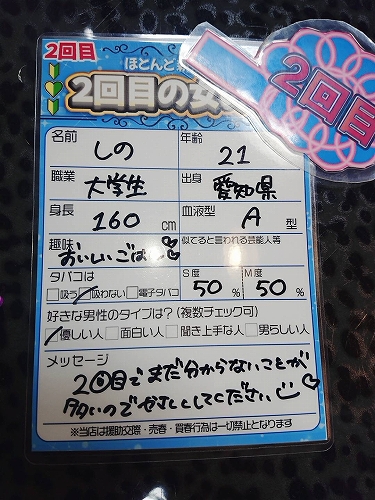 2回目
ほとんど
2回目の女
2回目
名前 しの 年齢 21
職業 大学生 出身 愛知県
身長 160 cm 血液型 A 型
趣味 おいしいごはん 似てると言われる芸能人等
タバコは S度 M度
□吸う □吸わない □電子タバコ 50 % 50 %
好きな男性のタイプは?(複数チェック可)
□優しい人 □面白い人 □聞き上手な人 □男らしい人
メッセージ
2回目でまだ分からないことが
多いのでやさしくしてください
※当店は援助交際・売春・買春行為は一切禁止となります